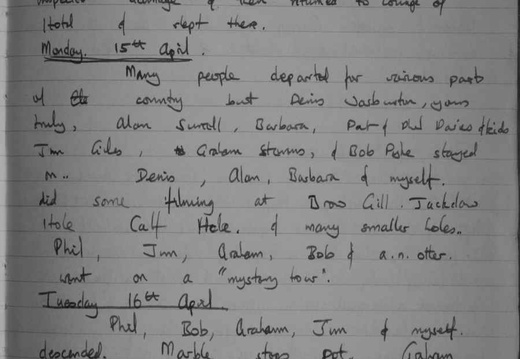 damage & then returned to lounge of
Hotel & slept there.
Monday. 15th April.
Many people departed for various parts
of country but Denis Warburton, yours
truly, Alan Surrall, Barbara, Pat & Phil Davies & kids
Jim Giles, Graham Stamms, & Bob Pyke stayed
Denis, Alan, Barbara & myself.
did some filming at Brow Gill. Jackdaw
Hole Calf Hole. & many smaller holes..
Phil, Jim, Graham, Bob & a.n. other.
went on a "mystery tour".
Tuesday 16th April
Phil, Bob, Graham, Jim & myself.
descended. Marble steps Pot. Graham